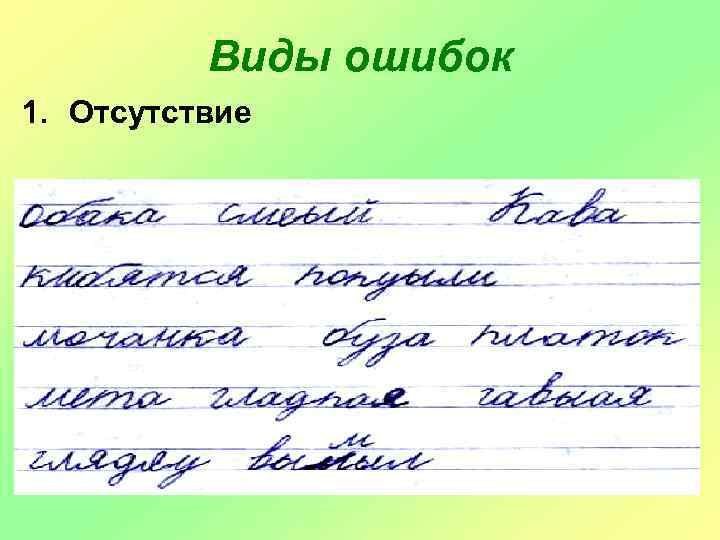 Виды ошибок
1. Отсутствие
обака смеый Кава
кибятся попуыли
мочанка буза платоп
мета гладпая гавыая
глядеу вымыл